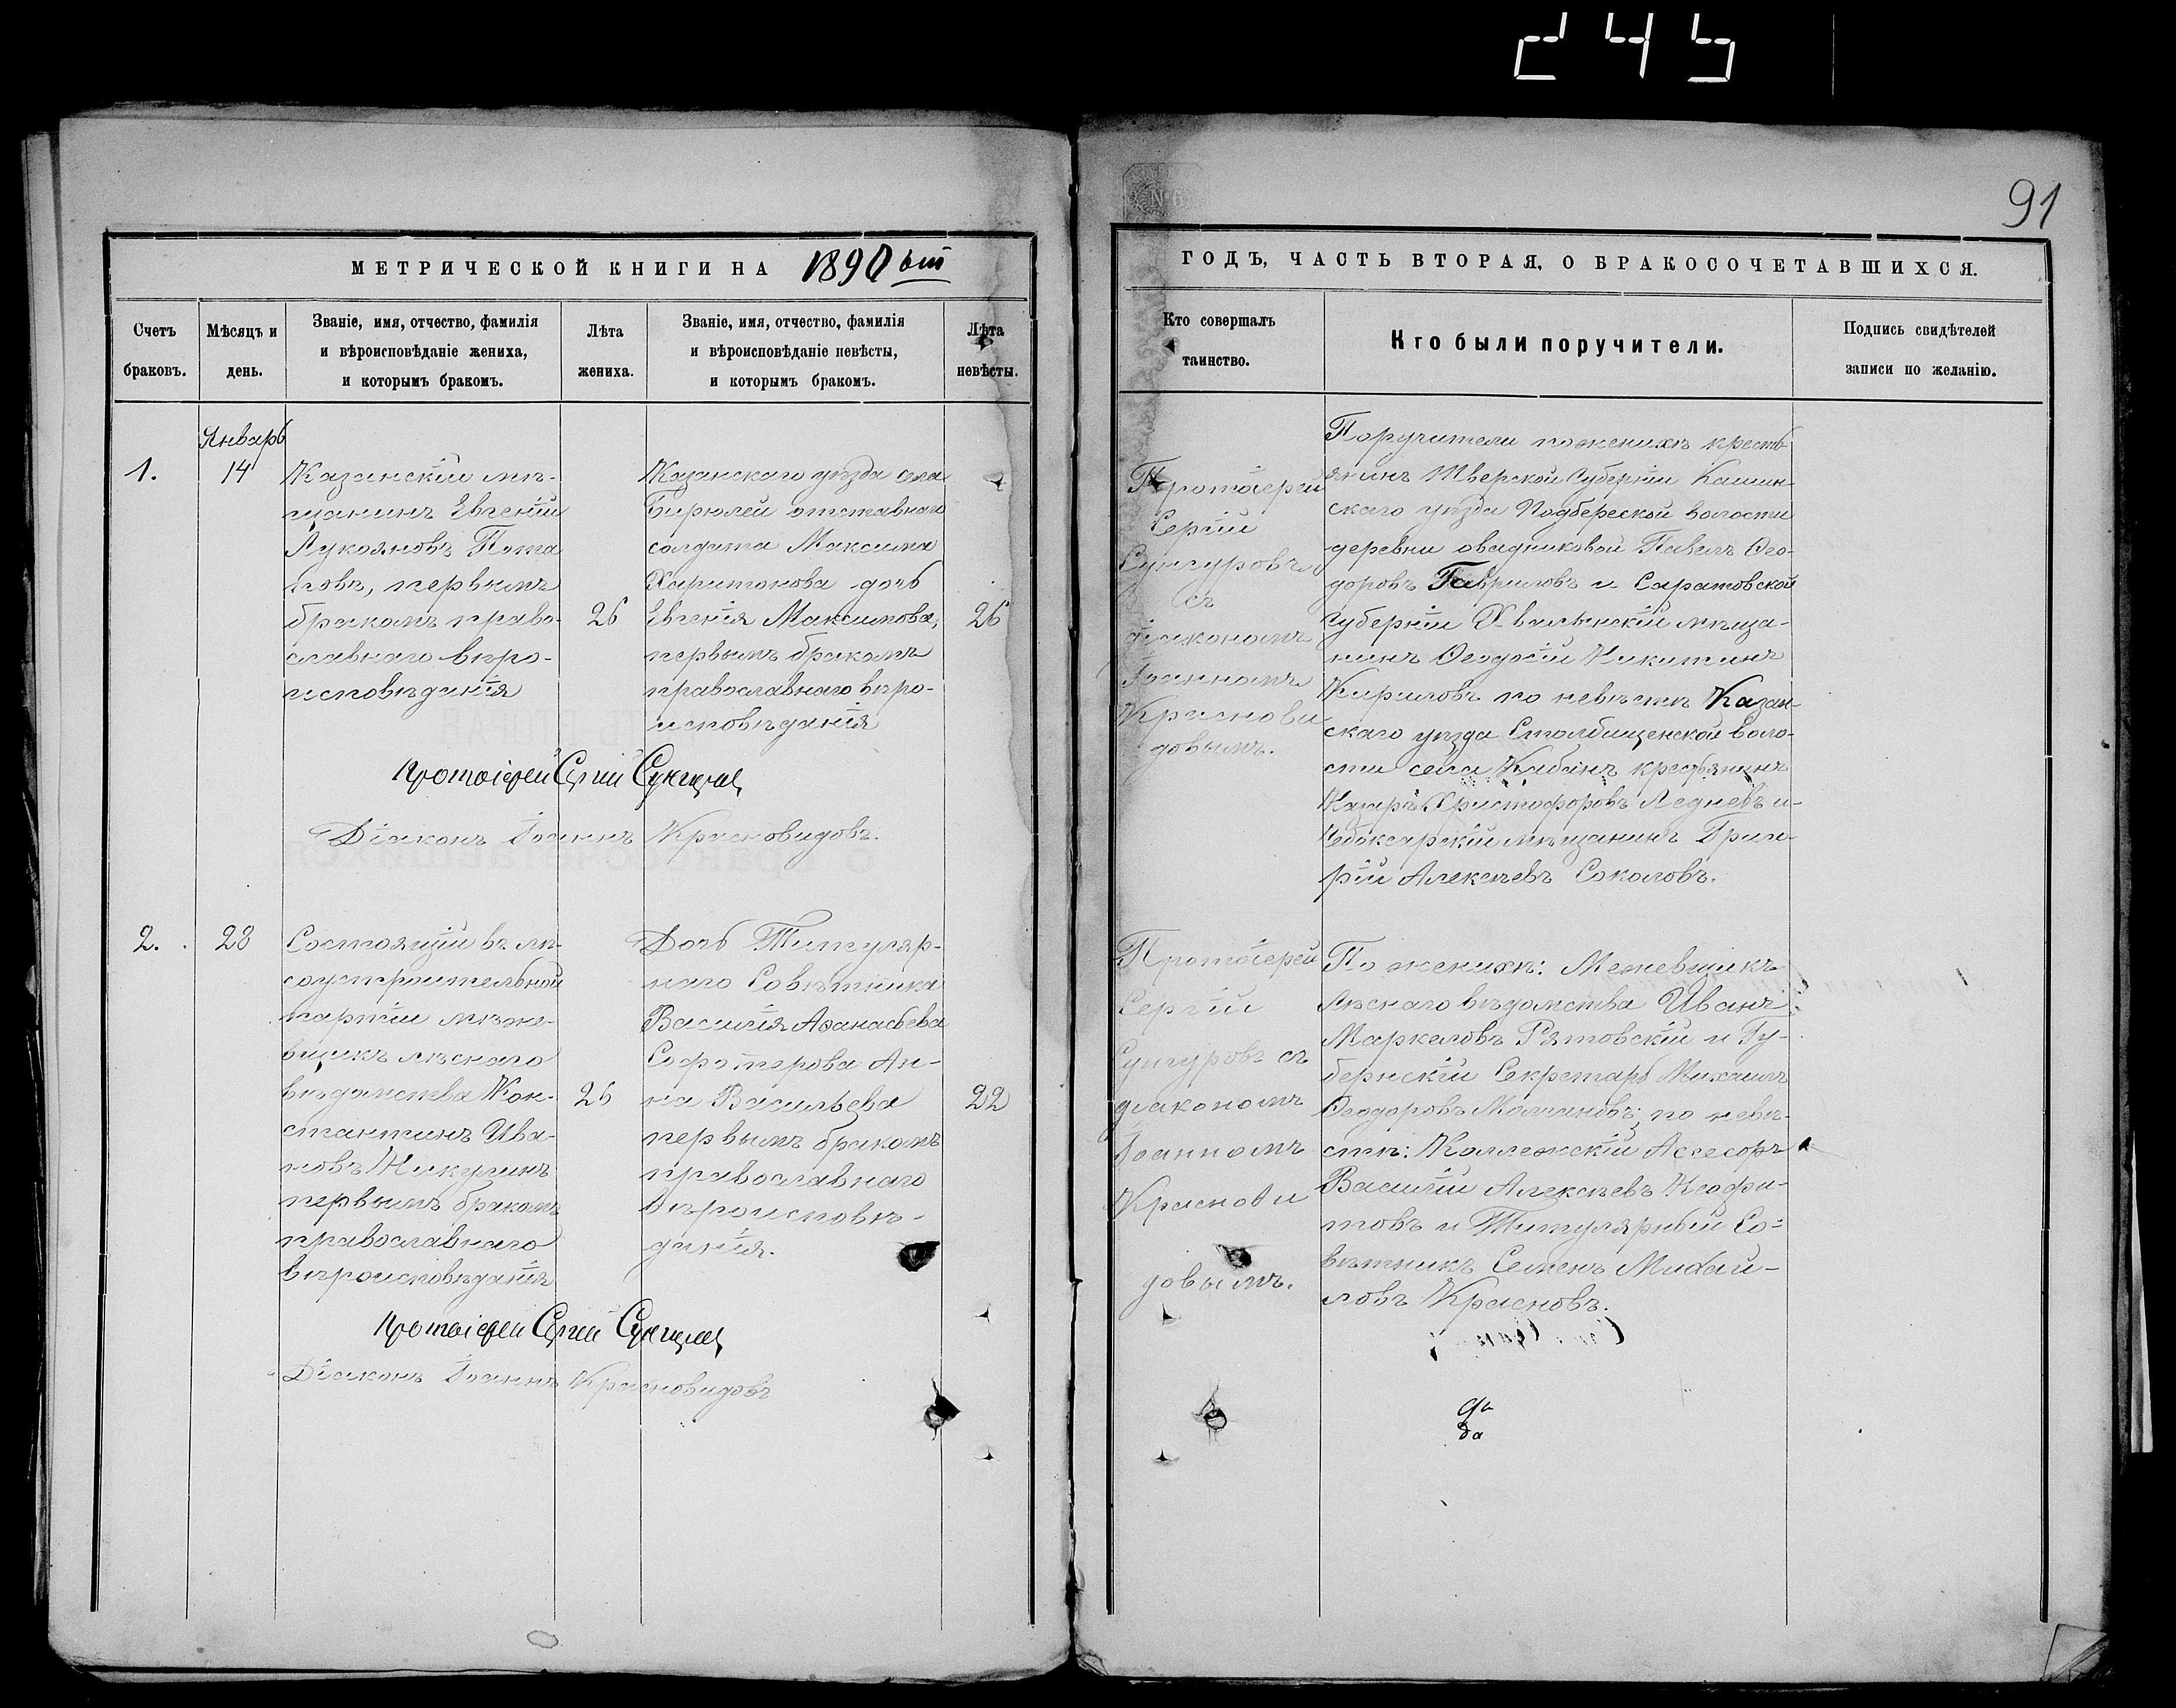 245
91
№ 6
МЕТРИЧЕСКОЙ КНИГИ НА 1890 ый
Счетъ
браковъ.
Мѣсяцъ и
день.
Званіе, имя, отчество, фамилія
и вѣроисповѣданіе жениха,
и которымъ бракомъ.
Лѣта
жениха.
Званіе, имя, отчество, фамилія
и вѣроисповѣданіе невѣсты,
и которымъ бракомъ.
Лѣта
невѣсты.
Январь
1.
14
Казанскій мѣ-
щанинъ Евгеній
Лукояновъ Пота
повъ, первымъ
бракомъ право-
славнаго вѣро-
исповѣданія
26
Казанскаго уѣзда села
Бирюлей отставнаго
солдата Максима
Харитонова дочь
Евгенія Максимова,
первымъ бракомъ
православнаго вѣро-
исповѣданія
26
Протоіерей Сергій Сунгуровъ
Діаконъ Іоаннъ Красновидовъ.
2.
28
Состоящій въ лѣ-
соустроительной
партіи меже-
вщикъ лѣснаго
вѣдомства Кон-
стантинъ Ива-
новъ Никулинъ
первымъ бракомъ
православнаго
вѣроисповѣданія
26
Дочь Титуляр-
наго Совѣтника
Василія Аѳанасьева
Софотерова Ан-
на Васильева
первымъ бракомъ
православнаго
вѣроисповѣ-
данія.
22
Протоіерей Сергій Сунгуровъ
Діаконъ Іоаннъ Красновидовъ
ГОДЪ, ЧАСТЬ ВТОРАЯ, О БРАКОСОЧЕТАВШИХСЯ.
Кто совершалъ
таинство.
Кто были поручители.
Подпись свидѣтелей
записи по желанію.
Протоіерей
Сергій
Сунгуровъ
съ
діакономъ
Іоанномъ
Краснови
довымъ.
Поручители по женихѣ кресть
янинъ Тверской Губерніи Кашин-
скаго уѣзда Подбереской волости
деревни Павелъ Ѳео-
доровъ Гавриловъ и Саратовской
губерніи Хвалынскій мѣща-
нинъ Ѳеодосій Никитинъ
Кириловъ по невѣстѣ Казан-
скаго уѣзда Столбищенской воло-
сти села Кабанъ крестьянинъ
Назаръ Христофоровъ Ледневъ и
Чебоксарскій мѣщанинъ Григо-
рій Алексѣевъ Соколовъ.
Протоіерей
Сергій
Сунгуровъ съ
діакономъ
Іоанномъ
Краснови
довымъ.
По женихѣ: Межевщикъ
Лѣснаго вѣдомства Иванъ
Маркеловъ Рятовскій и Гу-
бернскій Секретарь Михаилъ
Ѳеодоровъ Молчановъ; по невѣ-
стѣ: Коллежскій Асесоръ
Василій Алексѣевъ Неофи-
товъ и Титулярный Со-
вѣтникъ Семенъ Михай-
ловъ Красновъ.